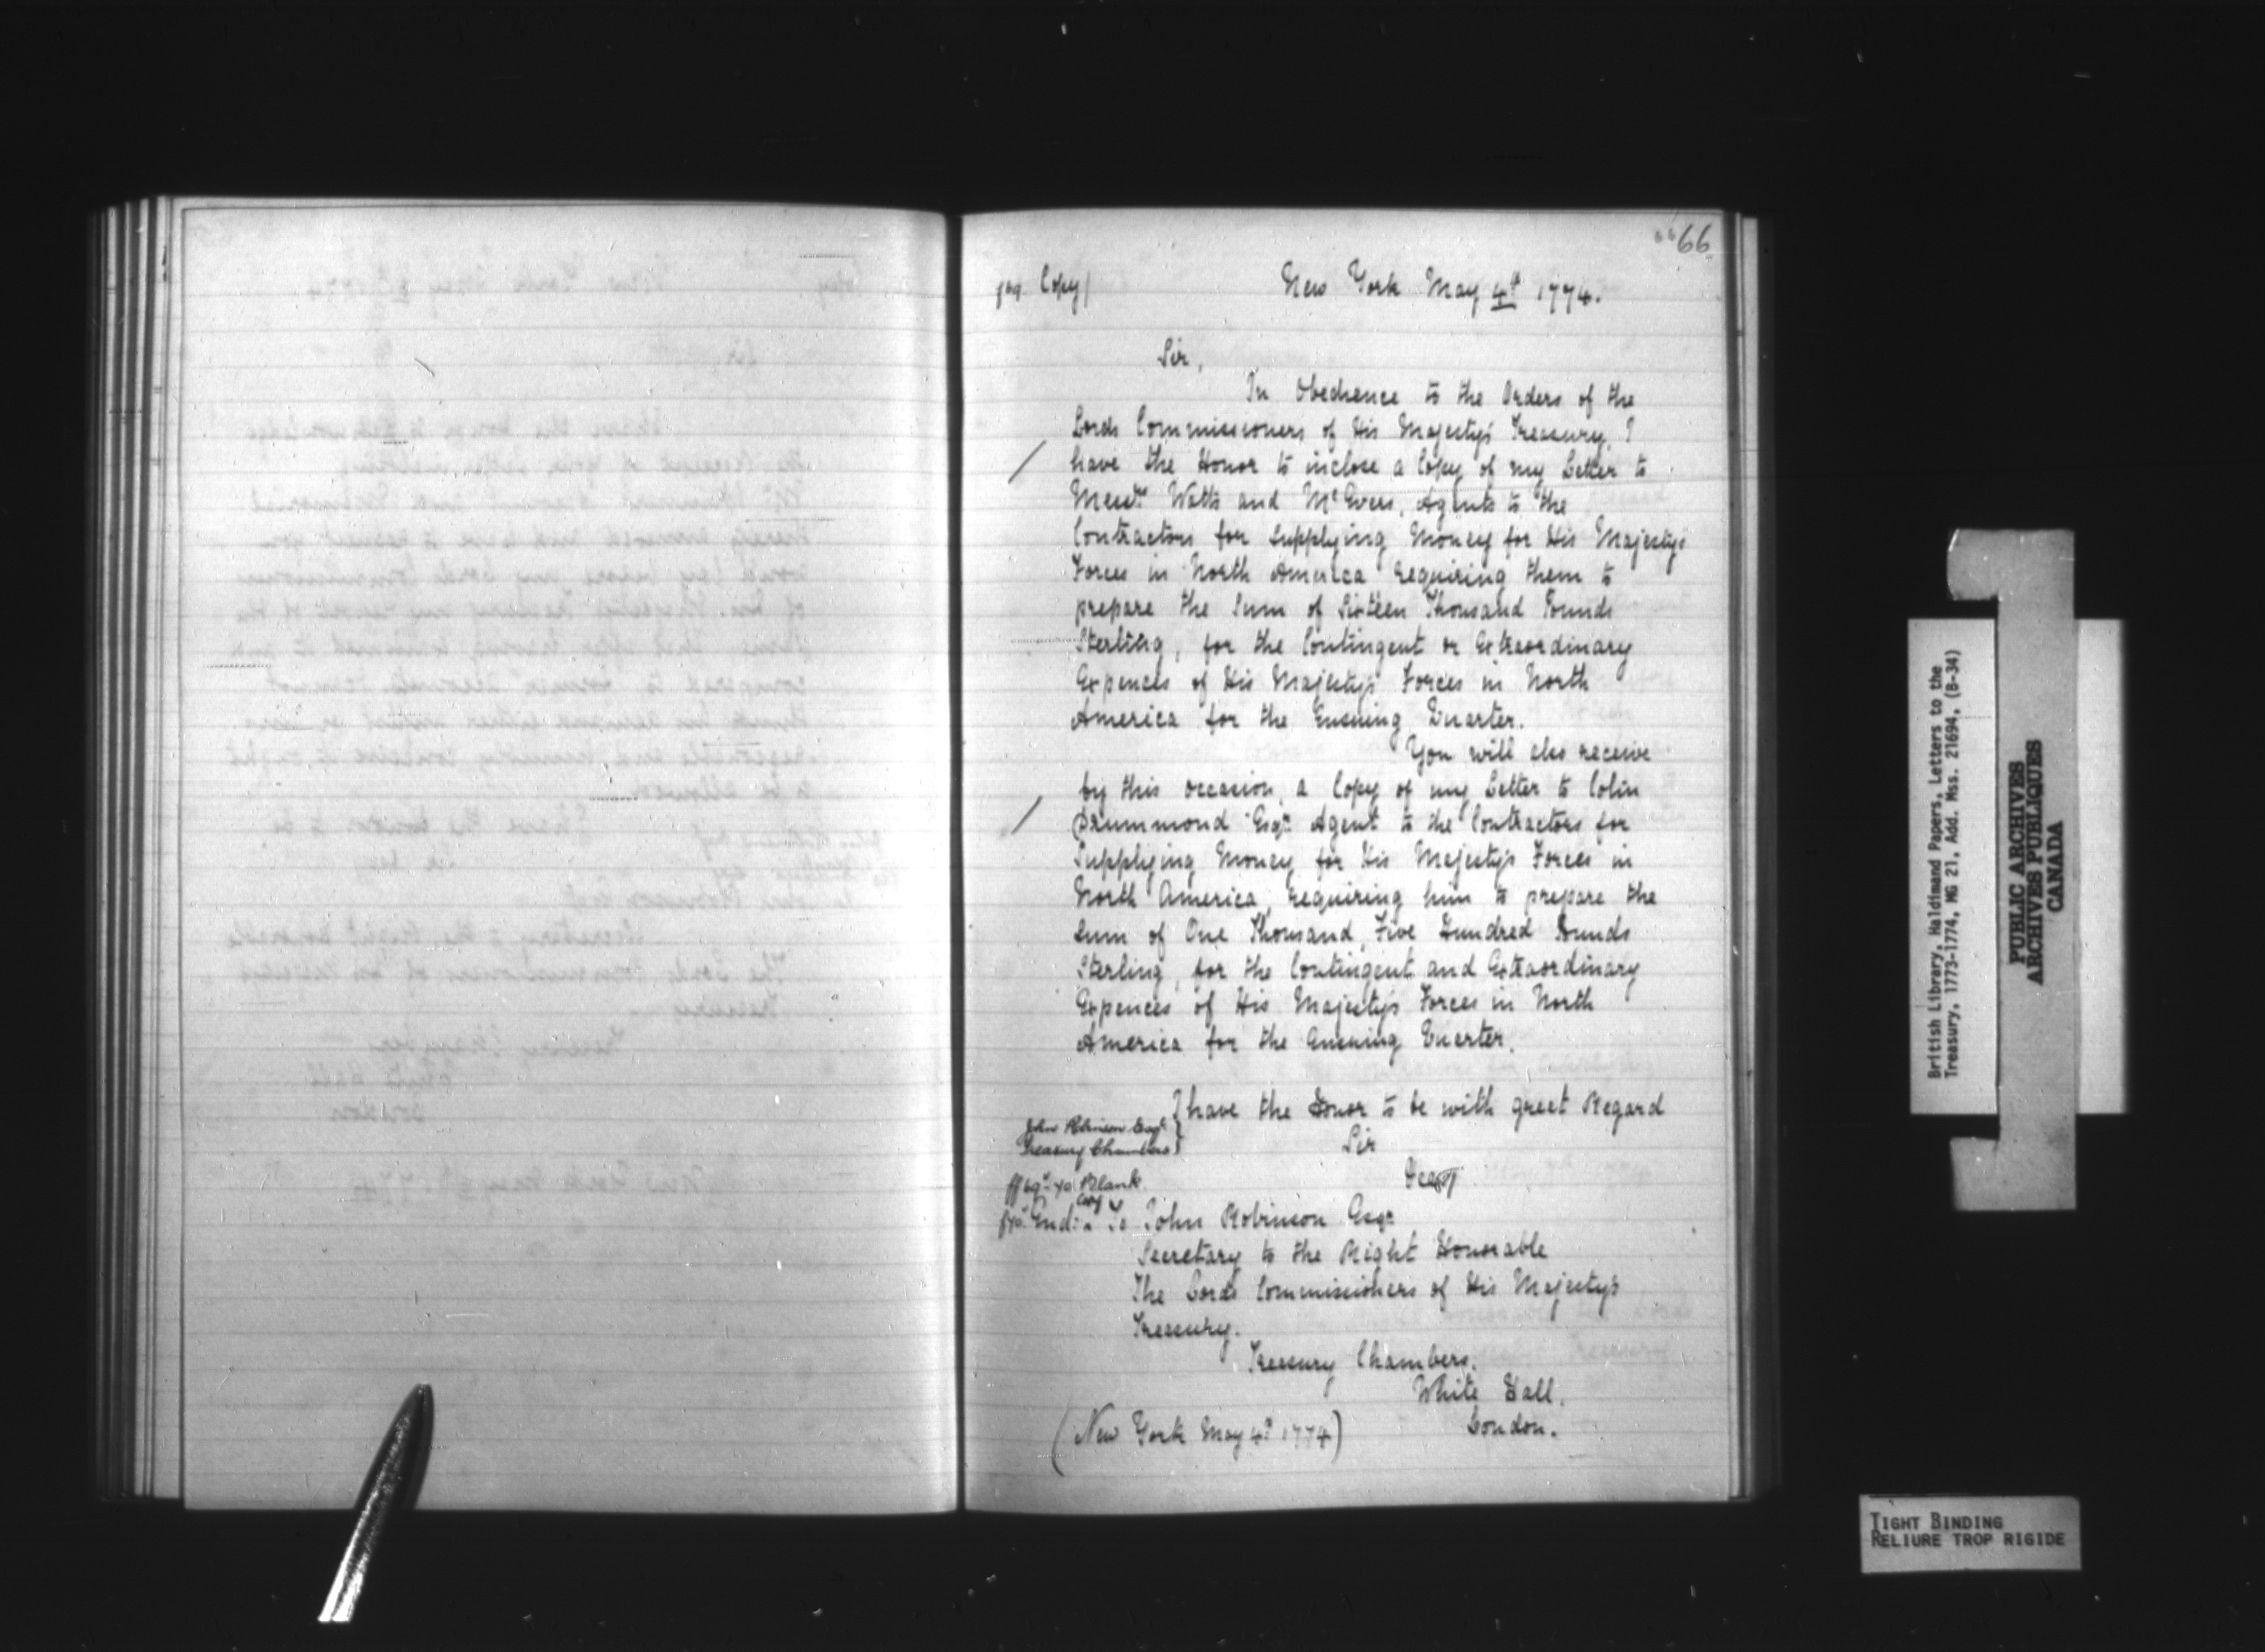 66
Copy
New York May 4th 1774.
Sir,
In Obedience to the Orders of the
Lords Commissioners of His Majesty's Treasury, I
have the Honor to inclose a Copy of my Letter to
Messrs Watts and McEvers, Agents to the
Contractors for Supplying Money for His Majesty's
Forces in North America requiring them to
prepare the Sum of Sixteen Thousand Pounds
Sterling, for the Contingent or Extraordinary
Expences of His Majesty's Forces in North
America for the Ensuing Quarter.
You will also receive
by this occasion, a Copy of my Letter to Colin
Drummond Esqr. Agent to the Contractors for
Supplying Money for His Majesty's Forces in
North America, requiring him to prepare the
Sum of One Thousand, Five Hundred Pounds
Sterling, for the Contingent and Extraordinary
Expences of His Majesty's Forces in North
America for the Ensuing Quarter.
I have the Honor to be with great Regard
John Robinson Esqr
Treasury Chambers
Sir
Blank
Copy
To John Robinson Esqr
Secretary to the Right Honorable
The Lords Commissioners of His Majesty's
Treasury.
Treasury Chambers.
White Hall.
London.
(New York May 4th 1774)
British Library, Haldimand Papers, Letters to the
Treasury, 1773-1774, MG 21, Add. Mss. 21694, (B-34)
PUBLIC ARCHIVES
ARCHIVES PUBLIQUES
CANADA
TIGHT BINDING
RELIURE TROP RIGIDE